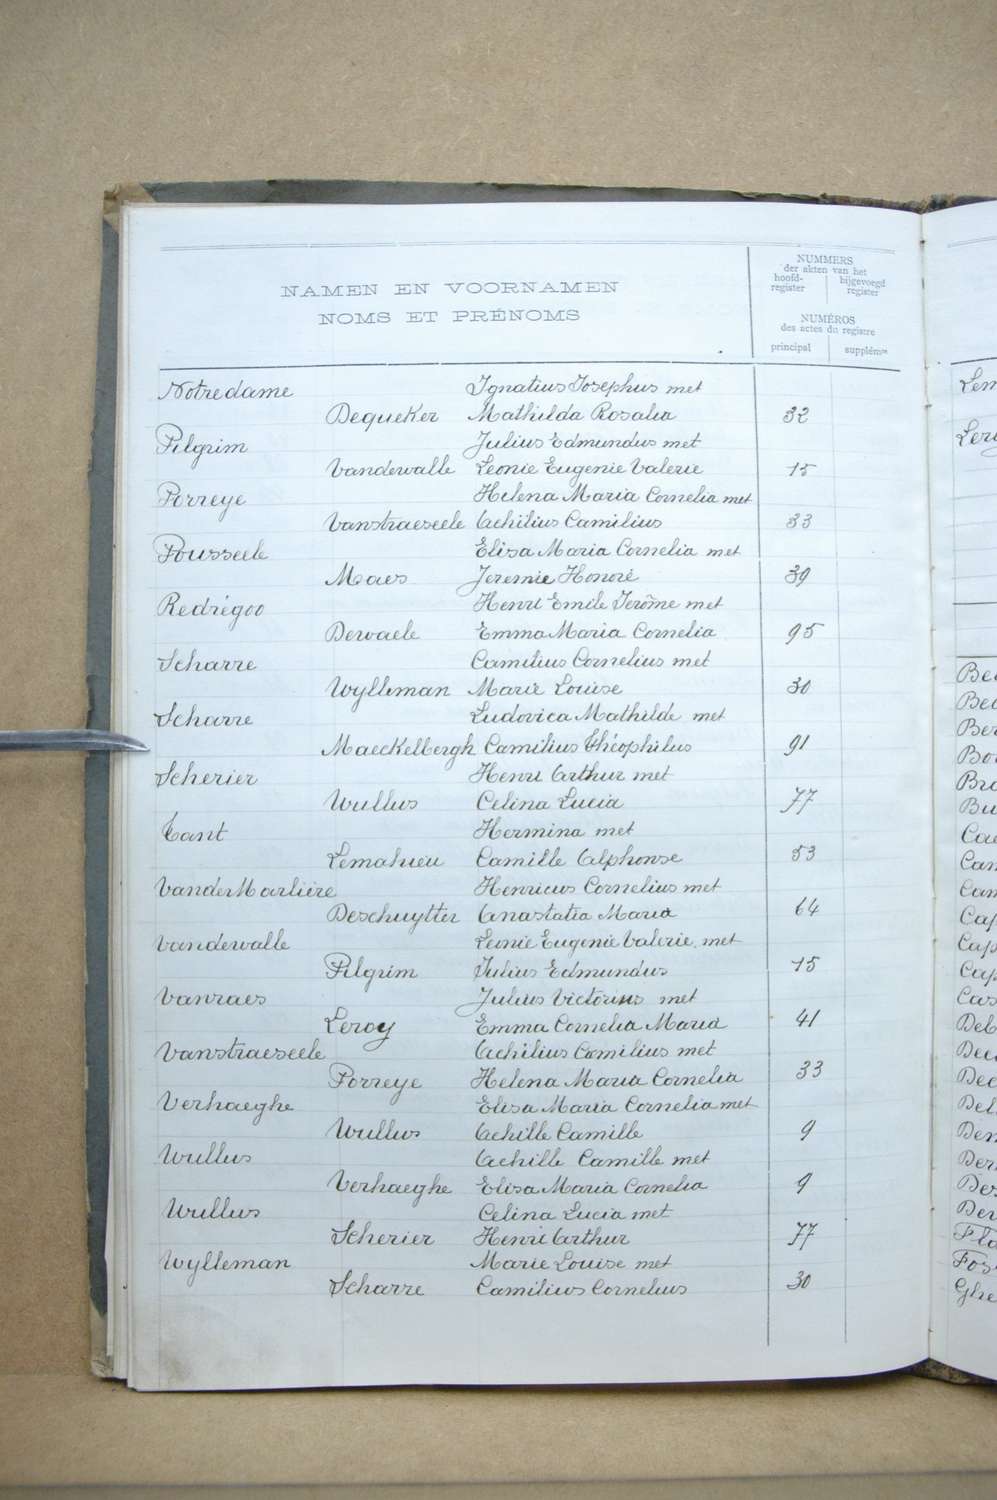 NAMEN EN VOORNAMEN
NOMS ET PRÉNOMS
NUMMERS
der akten van het
hoofd-register
bijgevoegd register
NUMÉROS
des actes du registre
principal
supplémre
Notredame Ignatius Josephus met
Dequeker Mathilda Rosalia 32
Pilgrim Julius Edmundus met
Vandewalle Leonie Eugenie Valerie 15
Porreye Helena Maria Cornelia met
Vanstraeseele Achilius Camilius 33
Pousseele Elisa Maria Cornelia met
Maes Jeremie Honoré 39
Redrégoo Henri Emile Jerôme met
Dewaele Emma Maria Cornelia 95
Scharre Camilius Cornelius met
Wylleman Marie Louise 30
Scharre Ludovica Mathilde met
Maeckelbergh Camilius Théophilus 91
Scherier Henri Arthur met
Wullus Celina Lucia 77
Tant Hermina met
Lemahieu Camille Alphonse 53
VanderMarliére Henricus Cornelius met
Deschuytter Anastatia Maria 64
Vandewalle Leonie Eugenie Valerie met
Pilgrim Julius Edmundus 15
Vanraes Julius Victorius met
Leroy Emma Cornelia Maria 41
Vanstraeseele Achilius Camilius met
Porreye Helena Maria Cornelia 33
Verhaeghe Elisa Maria Cornelia met
Wullus Achille Camille 9
Wullus Achille Camille met
Verhaeghe Elisa Maria Cornelia 9
Wullus Celina Lucia met
Scherier Henri Arthur 77
Wylleman Marie Louise met
Scharre Camilius Cornelius 30